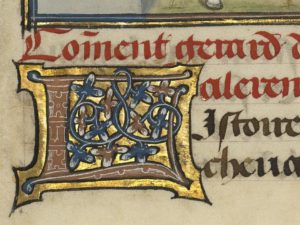 Coment gerard d
aleren
L
Istoire
cheua